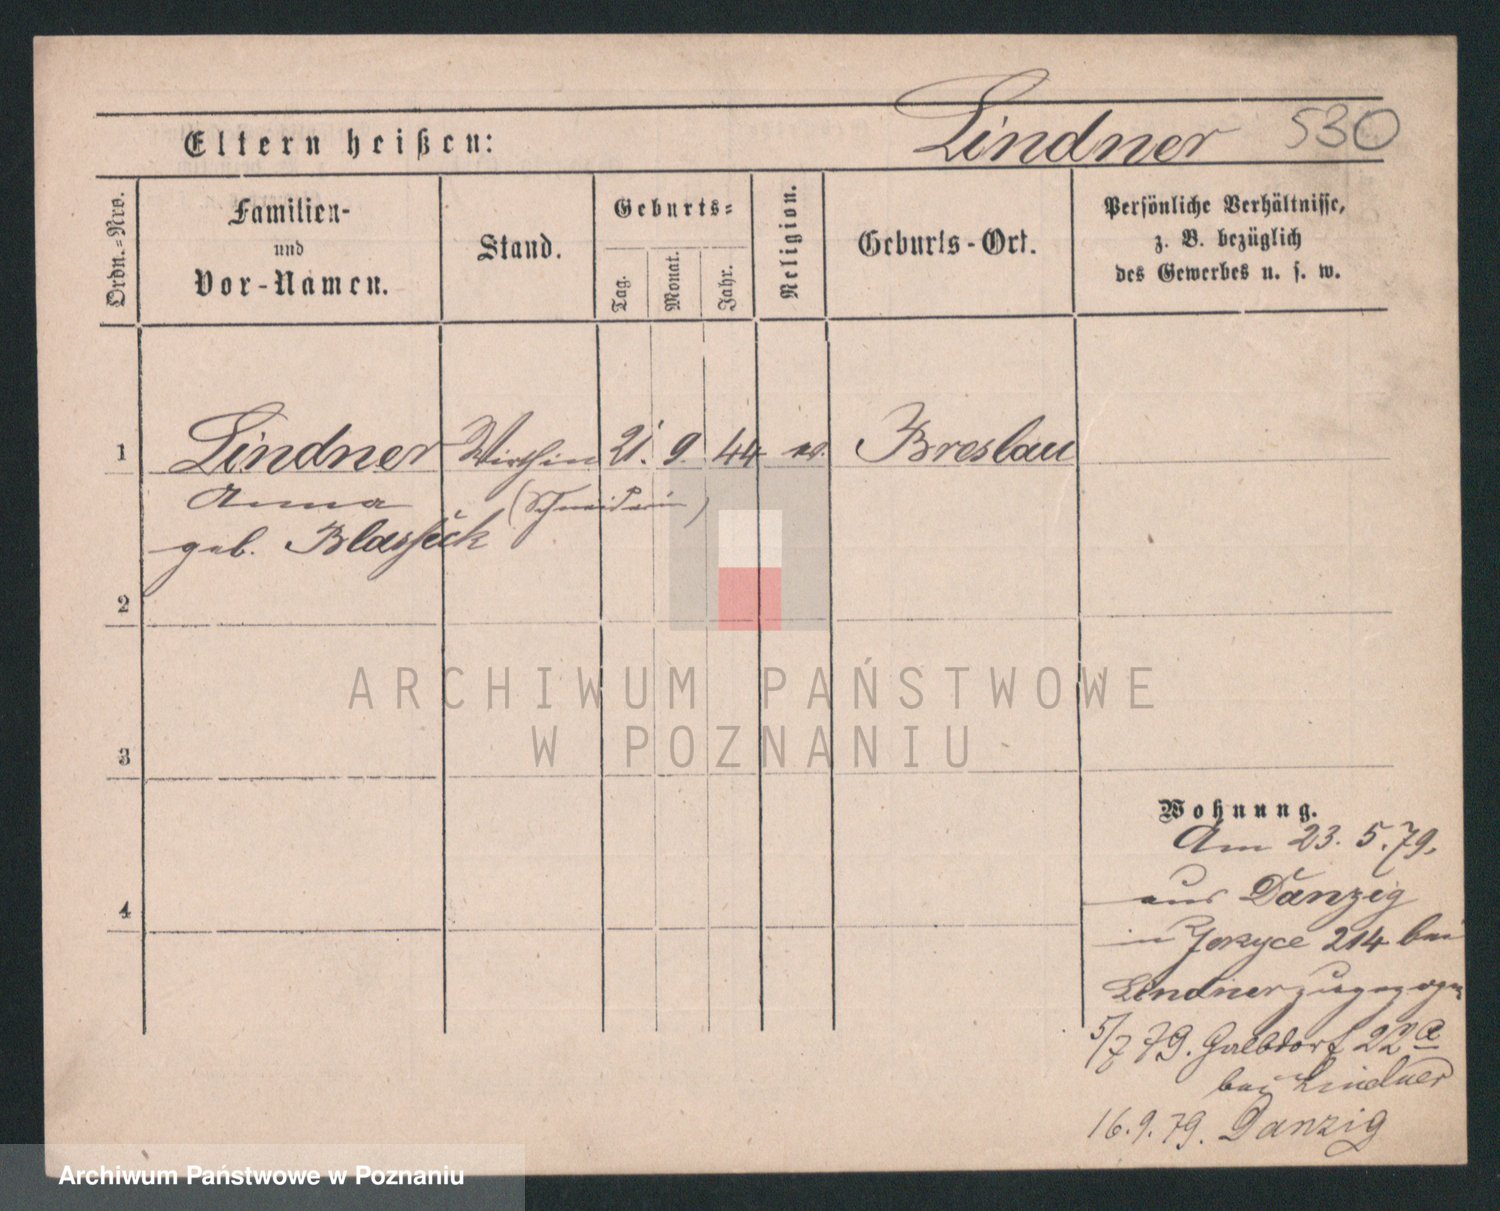 Lindner 530
Eltern heißen:
Ordn.-Nro.
Familien-
und
Vor-Namen.
Stand.
Geburts-
Tag.
Monat.
Jahr.
Religion.
Geburts-Ort.
Persönliche Verhältnisse,
z. B. bezüglich
des Gewerbes u. s. w.
1 Lindner Wirthin 21. 9. 44 Breslau
Anna (Schneiderin)
geb.
2
3
4
ARCHIWUM PAŃSTWOWE
W POZNANIU
Wohnung.
Am 23. 5. 79.
aus Danzig
in 214 bei
Lindner zugezogen
5/7 79. 22a
bei Lindner
16. 9. 79. Danzig
Archiwum Państwowe w Poznaniu